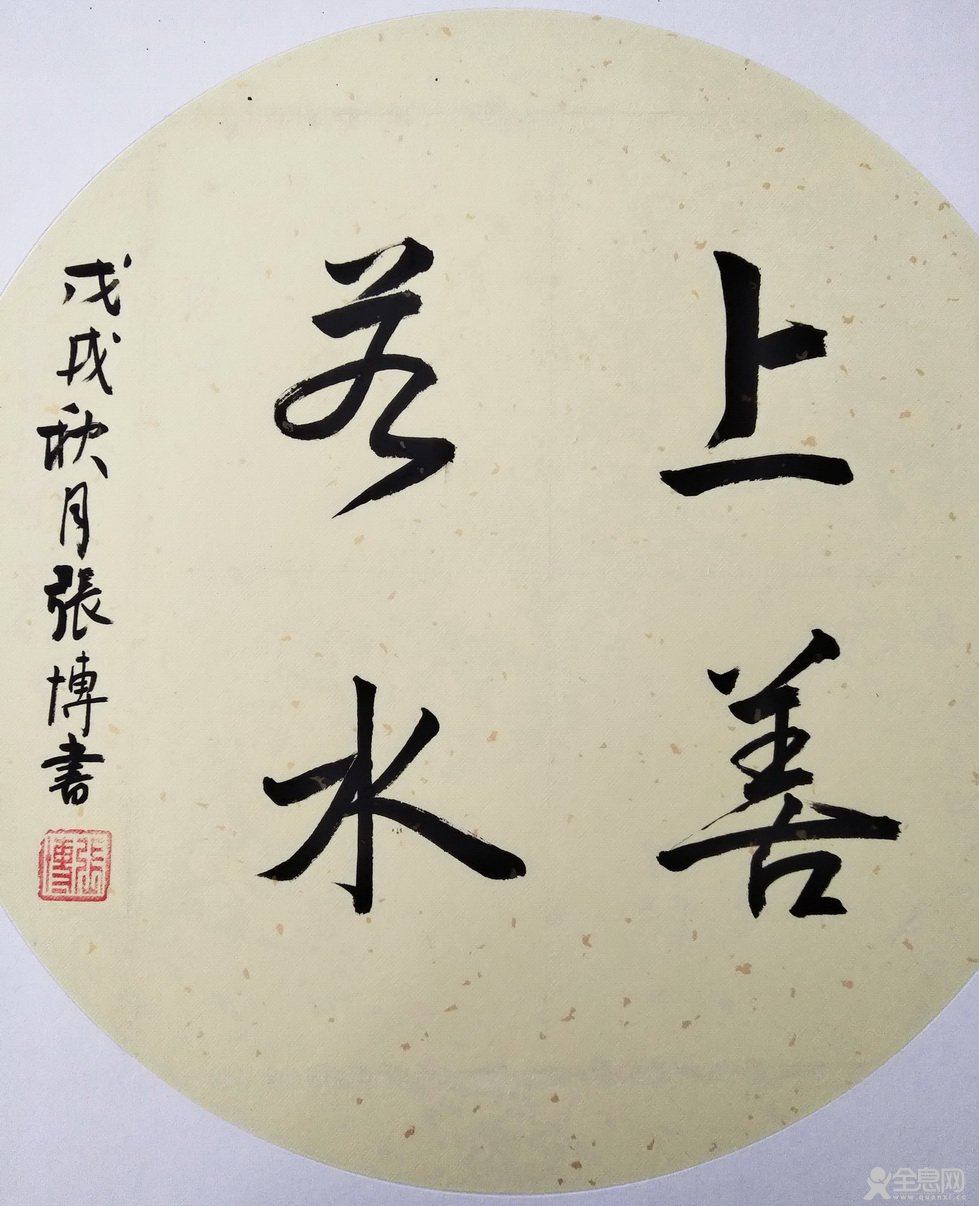 上善
若水
戊戌秋月張博書
張博
全息网
www.quanxi.cc